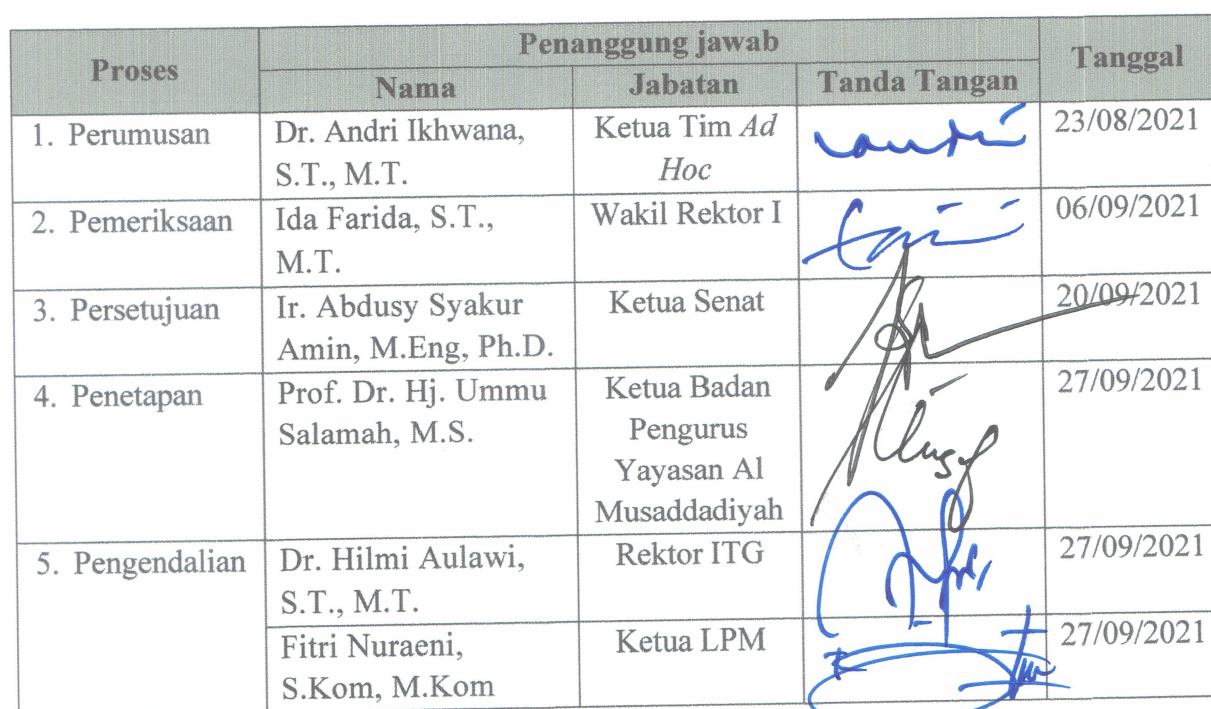 Proses
Penanggung jawab
Tanggal
Nama
Jabatan
Tanda Tangan
1. Perumusan
Dr. Andri Ikhwana,
S.T., M.T.
Ketua Tim Ad
Hoc
23/08/2021
2. Pemeriksaan
Ida Farida, S.T.,
M.T.
Wakil Rektor I
06/09/2021
3. Persetujuan
Ir. Abdusy Syakur
Amin, M.Eng, Ph.D.
Ketua Senat
20/09/2021
4. Penetapan
Prof. Dr. Hj. Ummu
Salamah, M.S.
Ketua Badan
Pengurus
Yayasan Al
Musaddadiyah
27/09/2021
5. Pengendalian
Dr. Hilmi Aulawi,
S.T., M.T.
Rektor ITG
27/09/2021
Fitri Nuraeni,
S.Kom, M.Kom
Ketua LPM
27/09/2021